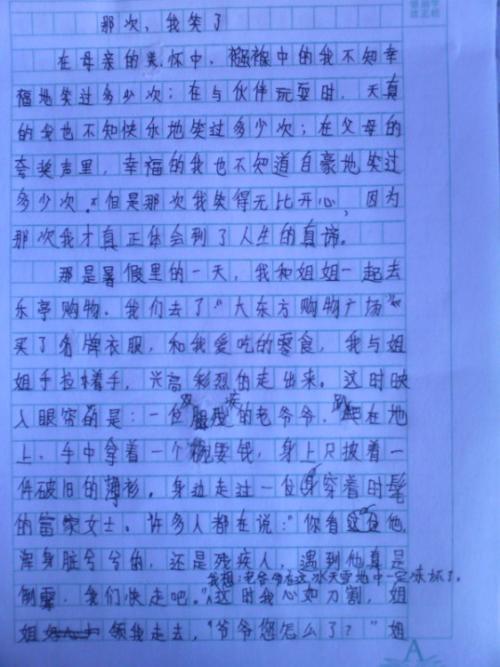 那次,我笑了
在母亲的怀中,襁褓中的我不知幸
福地笑过多少次;在与伙伴玩耍时,天真
的我也不知快乐地笑过多少次;在父母的
夸奖声里,幸福的我也不知道自豪地笑过
多少次。但是那次我笑得无比开心,因为
那次我才真正体会到了人生的真谛。
那是暑假里的一天,我和姐姐一起去
乐亭购物。我们去了“大东方购物广场”
买了名牌衣服,和我爱吃的零食,我与姐
姐手拉着手,兴高彩烈的走出来。这时映
入眼帘的是:一位双腿残疾的老爷爷,趴在地
上,手中拿着一个碗要钱,身上只披着一
件破旧的薄衫。身边走过一位身穿着时髦
的富家女士。许多人都在说:“你看这他,
浑身脏兮兮的,还是残疾人,遇到他真是
我想:老爷爷在这冰天雪地中一定冻坏了。
倒霉,我们快走吧。”这时我心如刀割,姐
姐领我走去,“爷爷您怎么了?”姐
A